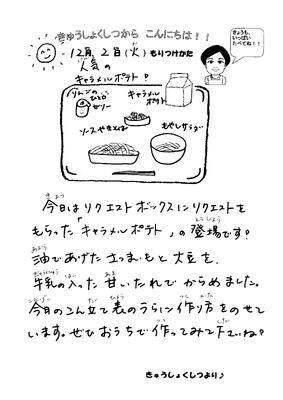 きゅうしょくしつから こんにちは!!
きょうも、
いっぱい
たべてね!!
12月2日(火) もりつけかた
人気の
キャラメルポテト!
りんごの
ひとロ
ゼリー
キャラメル
ポテト
ソースやきそば
もやしサラダ
今日はリクエストボックスにリクエストを
もらった「キャラメルポテト」の登場です!
油であげたさつまいもと大豆を、
牛乳の入った甘いたれでからめました。
今月のこん立て表のうらに作り方をのせて
います。ぜひおうちで作ってみて下さいね?
きゅうしょくしつより♪